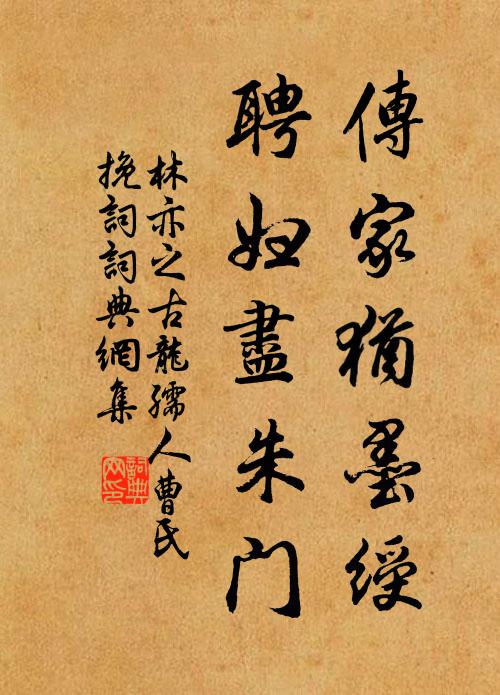 傳家猶墨綬
聘婦盡朱門
林亦之古龍孺人曹氏
挽詞詞典網集
詞典網印